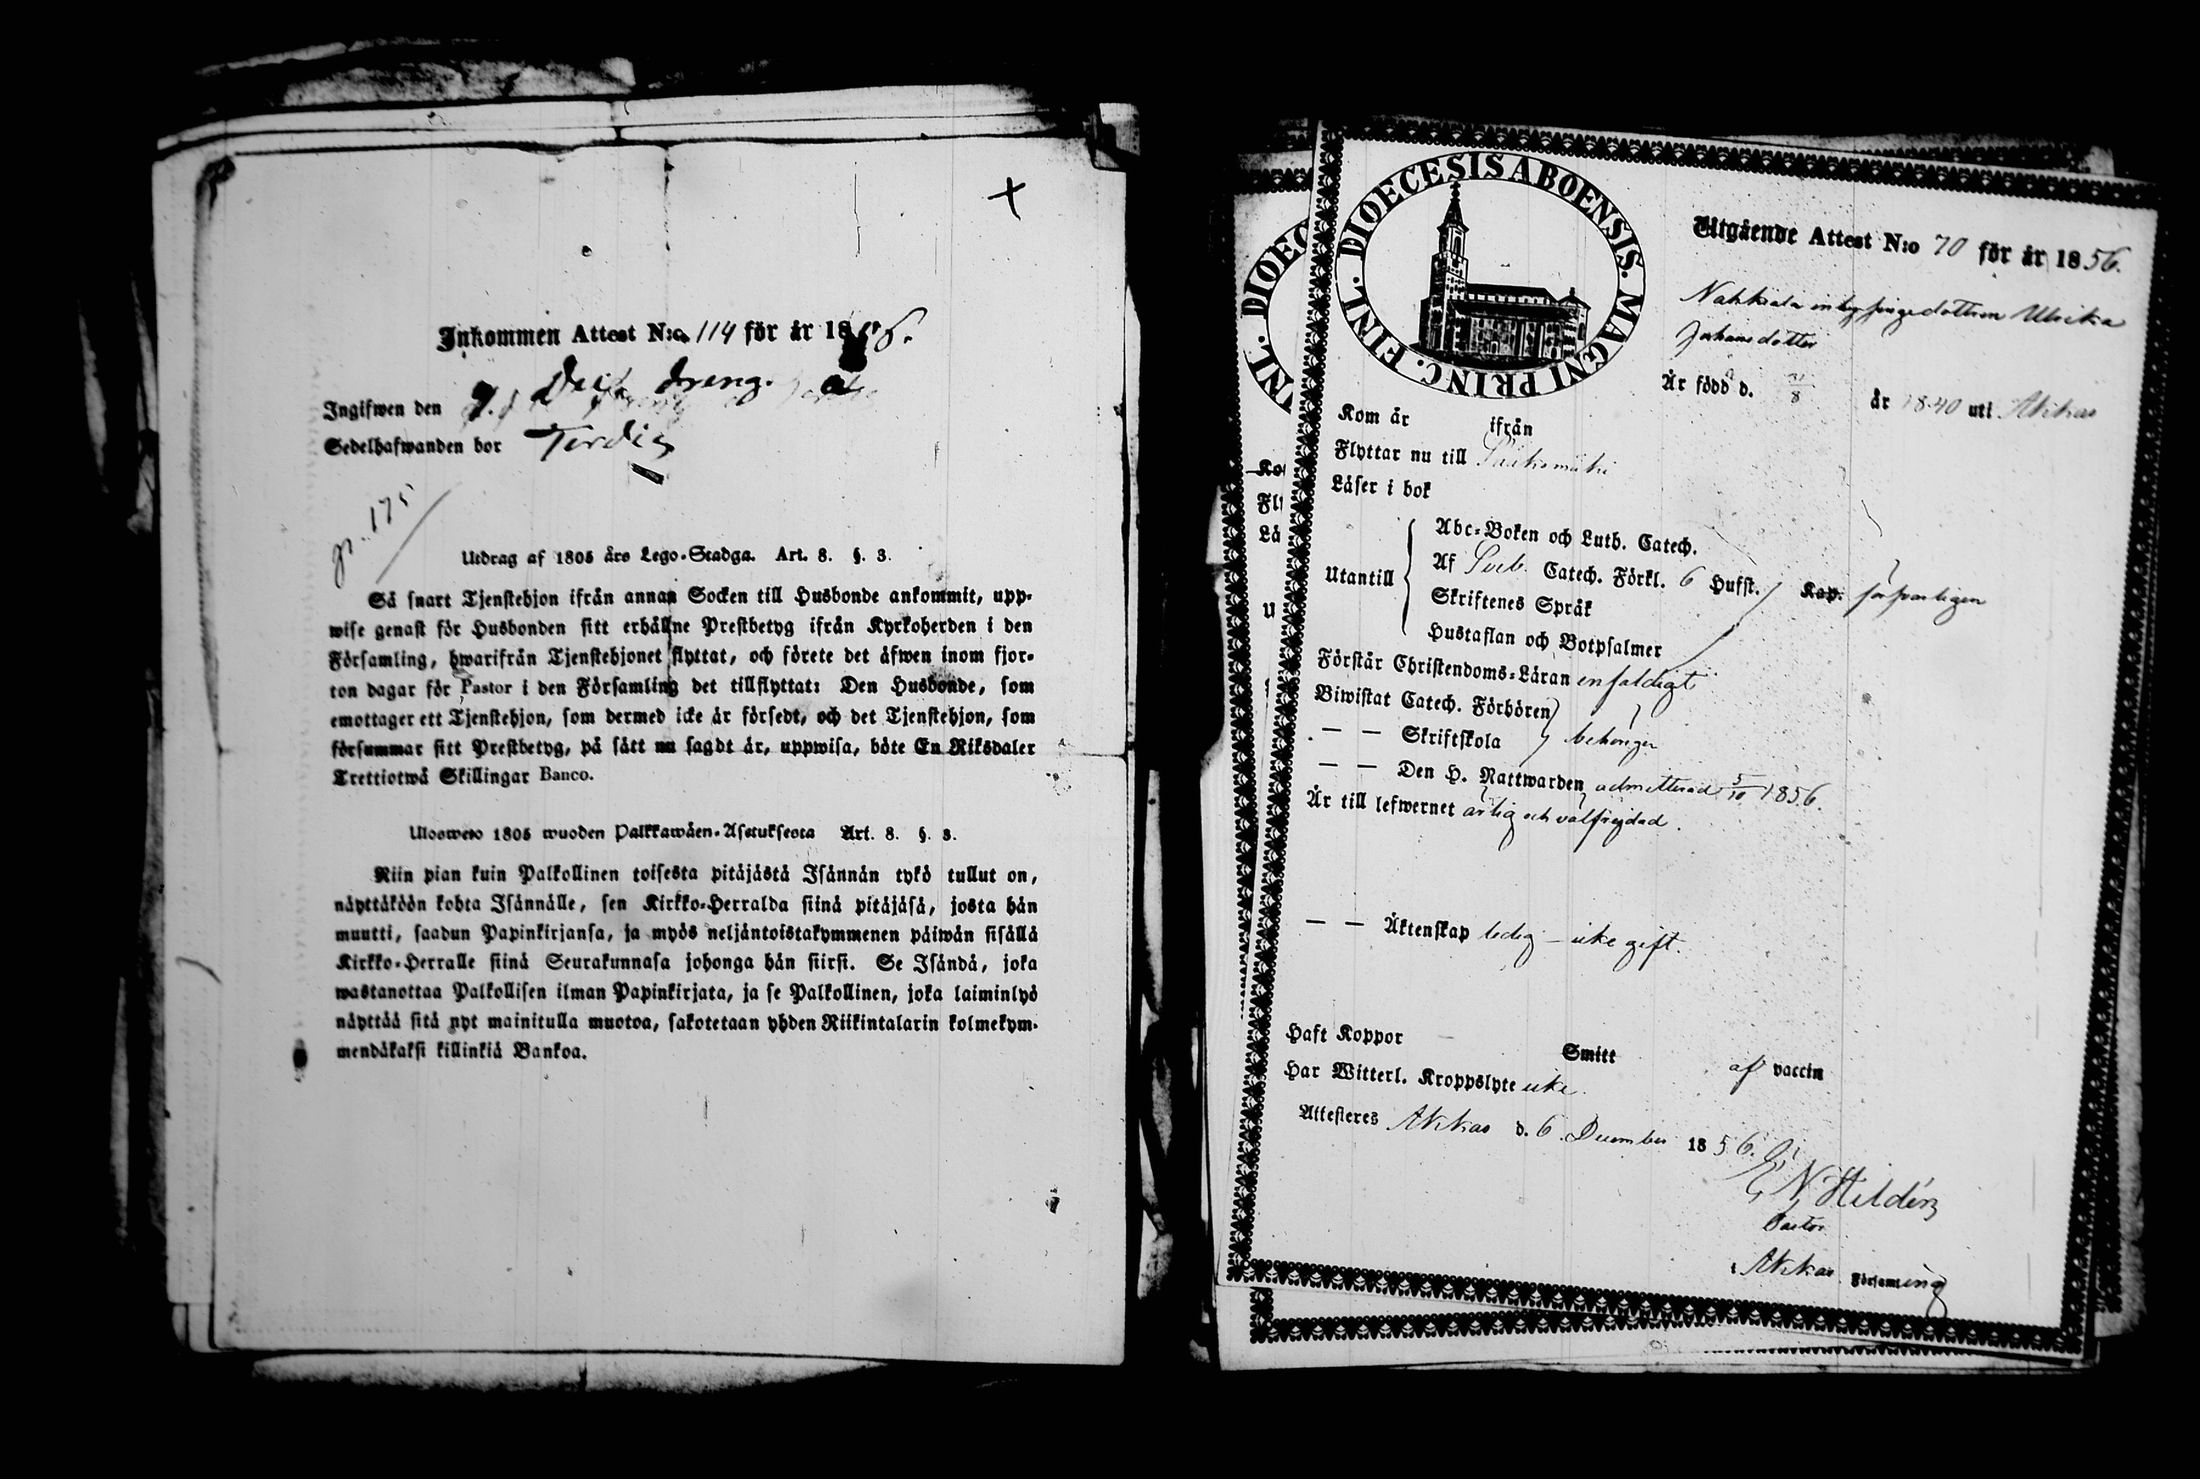 Inkommen Attest N:o 114 för år 18
Ingifwen den
Sedelhafwanden bor
Utdrag af 1805 års Lego-Stadga. Art. 8. §. 3.
Så snart Tjenstehjon ifrån annan Socken till Husbonde ankommit, upp-
wise genast för Husbonden sitt erhållne Prestbetyg ifrån Kyrkoherden i den
Församling, hwarifrån Tjenstehjonet flyttat, och förete det äfwen inom fjor-
ton dagar för Pastor i den Församling det tillflyttat: Den Husbonde, som
emottager ett Tjenstehjon, som dermed icke är försedt, och det Tjenstehjon, som
försummar sitt Prestbetyg, på sätt nu sagdt är, uppwisa, böte En Riksdaler
Trettiotwå Skillingar Banco.
Ulosweto 1805 wuoden Palkkawäen-Asetuksesta Art. 8. §. 3.
Niin pian kuin Palkollinen toisesta pitäjästä Isännän tykö tullut on,
näyttäköön kohta Isännälle, sen Kirkko-Herralda siinä pitäjäsä, josta hän
muutti, saadun Papinkirjansa, ja myös neljäntoistakymmenen päiwän sisällä
Kirkko-Herralle siinä Seurakunnasa johonga hän siirsi. Se Isändä, joka
wastanottaa Palkollisen ilman Papinkirjata, ja se Palkollinen, joka laiminlyö
näyttää sitä nyt mainitulla muotoa, sakotetaan yhden Riikintalarin kolmekym-
mendäkaksi killinkiä Bankoa.
FINL. DIOECESIS ABOENSIS. MAGNI PRINC.
Utgående Attest N:o 70 för år 1856.
Ulrika
Johansdotter
Är född d. 31/8 år 1840 uti Akkas
Kom år ifrån
Flyttar nu till Sääksmäki
Läser i bok
Utantill
Abc-Boken och Luth. Catech.
Af Sveb. Catech. Förkl. 6 Hufst. Kap. försvarligen
Skriftenes Språk
Hustaflan och Botpsalmer
Förstår Christendoms-Läran enfaldigt
Biwistat Catech. Förhören
— — Skriftskola behörigen
— — Den H. Nattwarden admitterad 5/10 1856.
Är till lefwernet ärlig och välfrejdad.
— — Äktenskap ledig — icke gift.
Haft Koppor Smitt af vaccin
Har Witterl. Kroppslyte icke.
Attesteres Akkas d. 6 December 1856.
Hildén
Pastor
i Akkas Församling